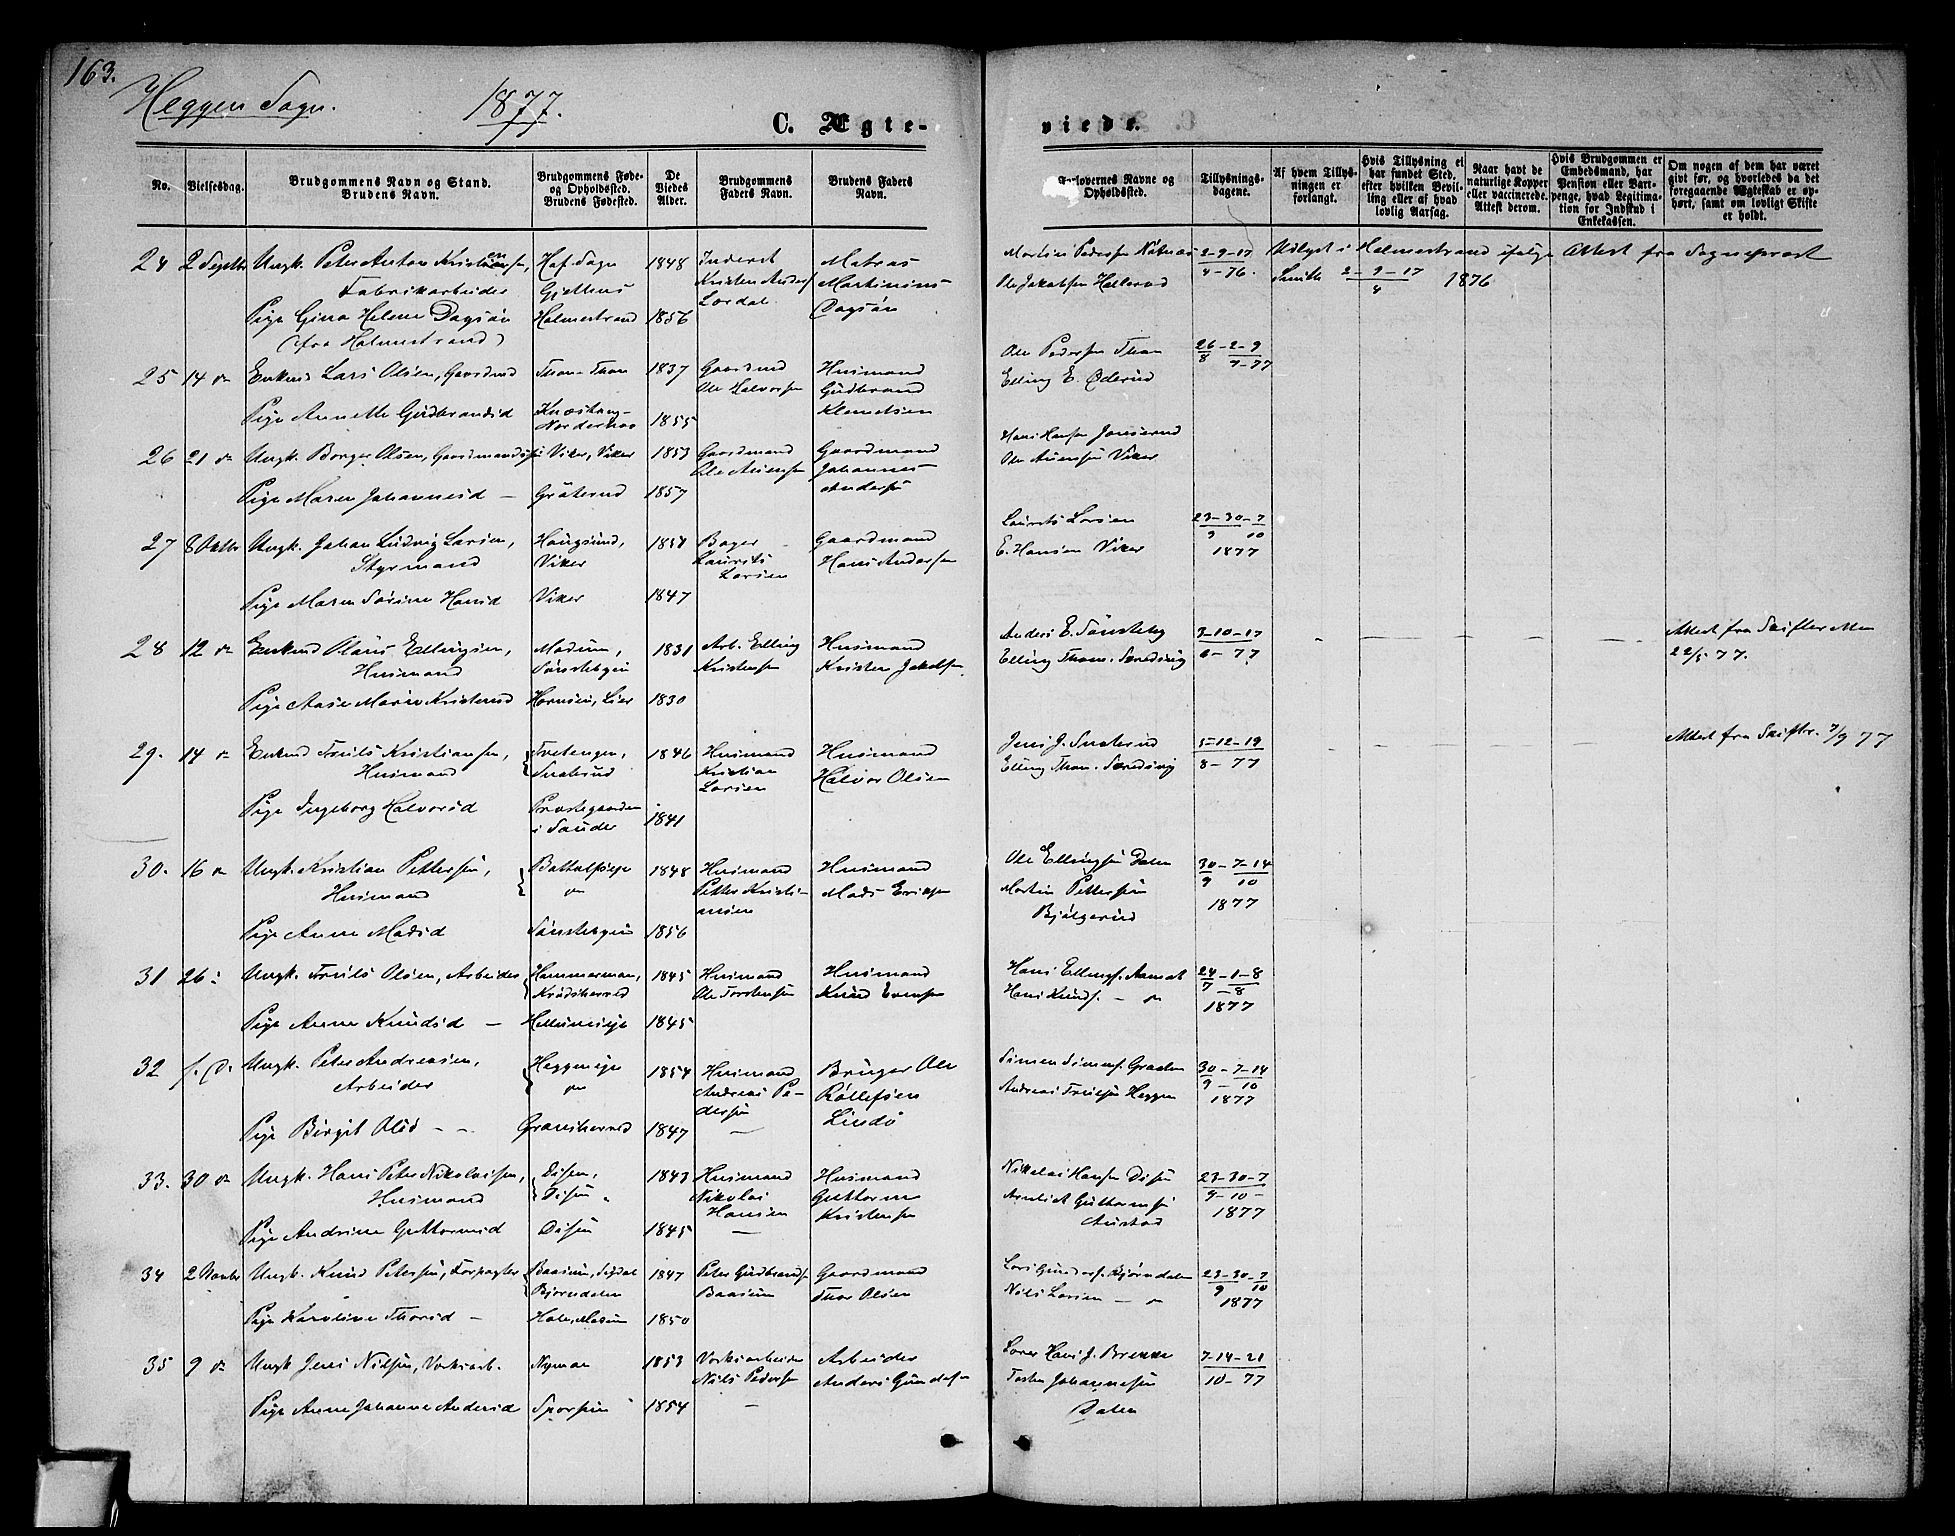 163.
Heggen Sogn. 1877.
C. Ægte-
viede.
No.
Vielsesdag.
Brudgommens Navn og Stand.
Brudens Navn.
Brudgommens Føde-
og Opholdssted.
Brudens Fødested.
De
Viedes
Alder.
Brudgommens
Faders Navn.
Brudens Faders
Navn.
Forlovernes Navne og
Opholdssted.
Tillysnings-
dagene.
Af hvem Tillys-
ningen er
forlangt.
Hvis Tillysning ei
har fundet Sted,
efter hvilken Bevil-
ling eller af hvad
lovlig Aarsag.
Naar havt de
naturlige Kopper
eller vaccinerede.
Attest derom.
Hvis Brudgommen er
Embedsmand, har
Pension eller Vart-
penge, hvad Legitima-
tion for Indskud i
Enkekassen.
Om nogen af dem har været
gift før, og hvorledes da det
foregaaende Ægteskab er op-
hørt, samt om lovligt Skifte
er holdt.
24 2 Septbr Ungk. Peter Anton Kristiansen,
Fabrikarbeider
Pige Gina Helene Dagsøn
(fra Holmestrand)
Hof Sogn
Holmestrand
1848
1856
Kristen Anders
Martinius
Dagsøn
Ole Jakobsen Hellerud
2-9-17
4-76.
Udlyst i Holmestrand ifølge Attest fra Sogneprest
Smith 2-9-17
4
1876
25 14 do Enkem. Lars Olsen, Gaardmd
Pige Annette Gudbrandsd
Thon - Thon
Norderhov
1837
1855
Gaardmd
Ole Halvorsen
Husmand
Gudbrand
Klemetsen
Ole Pedersen Thon
Elling E. Øderud
26-2-9
8 9-77
26 21 do Ungk. Borger Olsen, Gaardmands
Pige Maren Johannesd -
Viker, Viker
Gråterud
1853
1857
Gaardmand
Gaardmand
Johannes
Andersen
Viker
27 8 Oktbr Ungk. Johan Ludvig Larsen,
Styrmand
Pige Maren Sørine Hansd
Haugsund,
Viker
Viker
1847
Bager
Laurits
Larsen
Gaardmand
Hans Andersen
Laurits Larsen
E. Hansen Viker
23-30-7
9 10
1877
28 12 do Enkemd Olaus Ellingsen,
Husmand
Pige Aase Marie Kristensd
Modum,
Lier
1831
1830
Arb. Elling
Kristensen
Husmand
Kristen Jakobsen
Anders E. Sønsteby
3-10-17
6-77
Attest fra Skifter
22/5 77.
29. 14 do Enkemd Truls Kristiansen,
Husmand
Pige Ingeborg Halvorsd
Tvetengen,
Snarud
Præstegaarden
i Sande
1846
1841
Husmand
Kristian
Larsen
Husmand
Halvor Olsen
5-12-19
8-77
Attest fra Skifter. 7/9 77
30. 16 do Ungk. Kristian Pettersen,
Husmand
Pige Anne Madsd
do
1848
1856
Husmand
Petter Kristi-
ansen
Husmand
Mads Eriksen
Ole Ellingsen Dalen
Martin Pettersen
Bjølgerud
30-7-14
9 10
1877
31 26 Ungk. Truls Olsen, Arbeider
Pige Anne Knudsd -
Krødsherred
1845
1845
Husmand
Ole Torstensen
Husmand
Knud Evensen
Hans Ellings. Aamot
Hans Knuds. - do
24-1-8
7-8
1877
32 s. D. Ungk. Peter Andreasen,
Arbeider
Pige Birgit Olsd - -
Heggeneje
do
Gransherred
1854
1847
Husmand
Andreas Pe-
dersen
-
Bruger Ole
Rollefsen
Lindø
Simen Simens. Graaten
Andreas Trulsen Heggen
30-7-14
9-10
1877
33. 30 do Ungk. Hans Peter Nikolaisen,
Husmand
Pige Andrine Guttormsd
Disen,
Disen
Disen
1843
1845
Husmand
Nikolai
Hansen
-
Husmand
Guttorm
Kristensen
Nikolai Hansen Disen
Guttormsen
Austad
23-30-7
9-10-
1877
34 2 Novbr Ungk. Knud Petersen, Forpagter
Pige Karoline Thorsd -
Baasum, Sigdal
Bjørndalen
1847
1850
Peter Gudbrands
Baasum
Gaardmand
Thor Olsen
Bjørndalen
Nils Larsen - do
23-30-7
9 10
1877
35 9 do Ungk. Jens Nilsen, Værksarb.
Pige Anne Johanne Andersd
Nymoen
1853
1854
Værksarbeider
Nils Pedersen
-
Arbeider
Anders Gundersen
Hans J. Brekke
Johannesen
Dalen
7-14-21
10-77